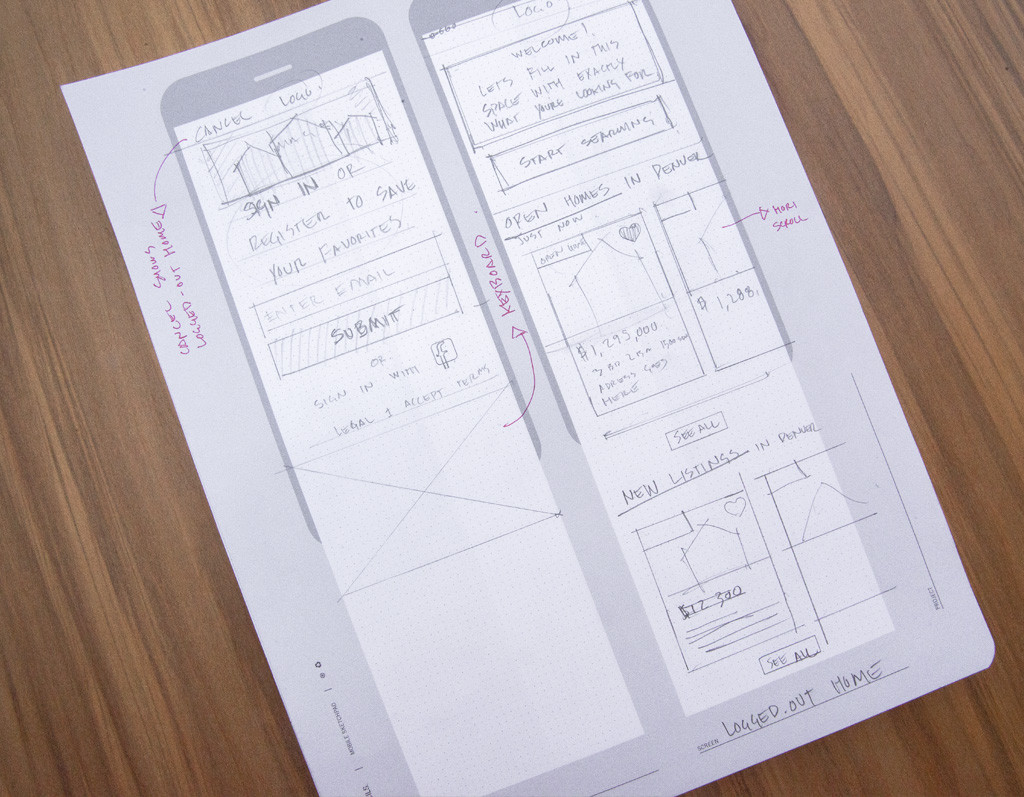 CANCEL
LOGO
SIGN IN OR
REGISTER TO SAVE
YOUR FAVORITES
ENTER EMAIL
SUBMIT
OR
SIGN IN WITH
LEGAL I ACCEPT TERMS
CANCEL SHOWS
LOGGED-OUT HOME
KEYBOARD
LOGO
WELCOME!
LET'S FILL IN THIS
SPACE WITH EXACTLY
WHAT YOU'RE LOOKING FOR
START SEARCHING
OPEN HOMES IN DENVER
JUST NOW
$1,295,000
ADDRESS GOES
HERE
$1,288,
HORI
SCROLL
SEE ALL
NEW LISTINGS IN DENVER
SEE ALL
PROJECT
SCREEN LOGGED.OUT HOME
MOBILE SKETCHPAD